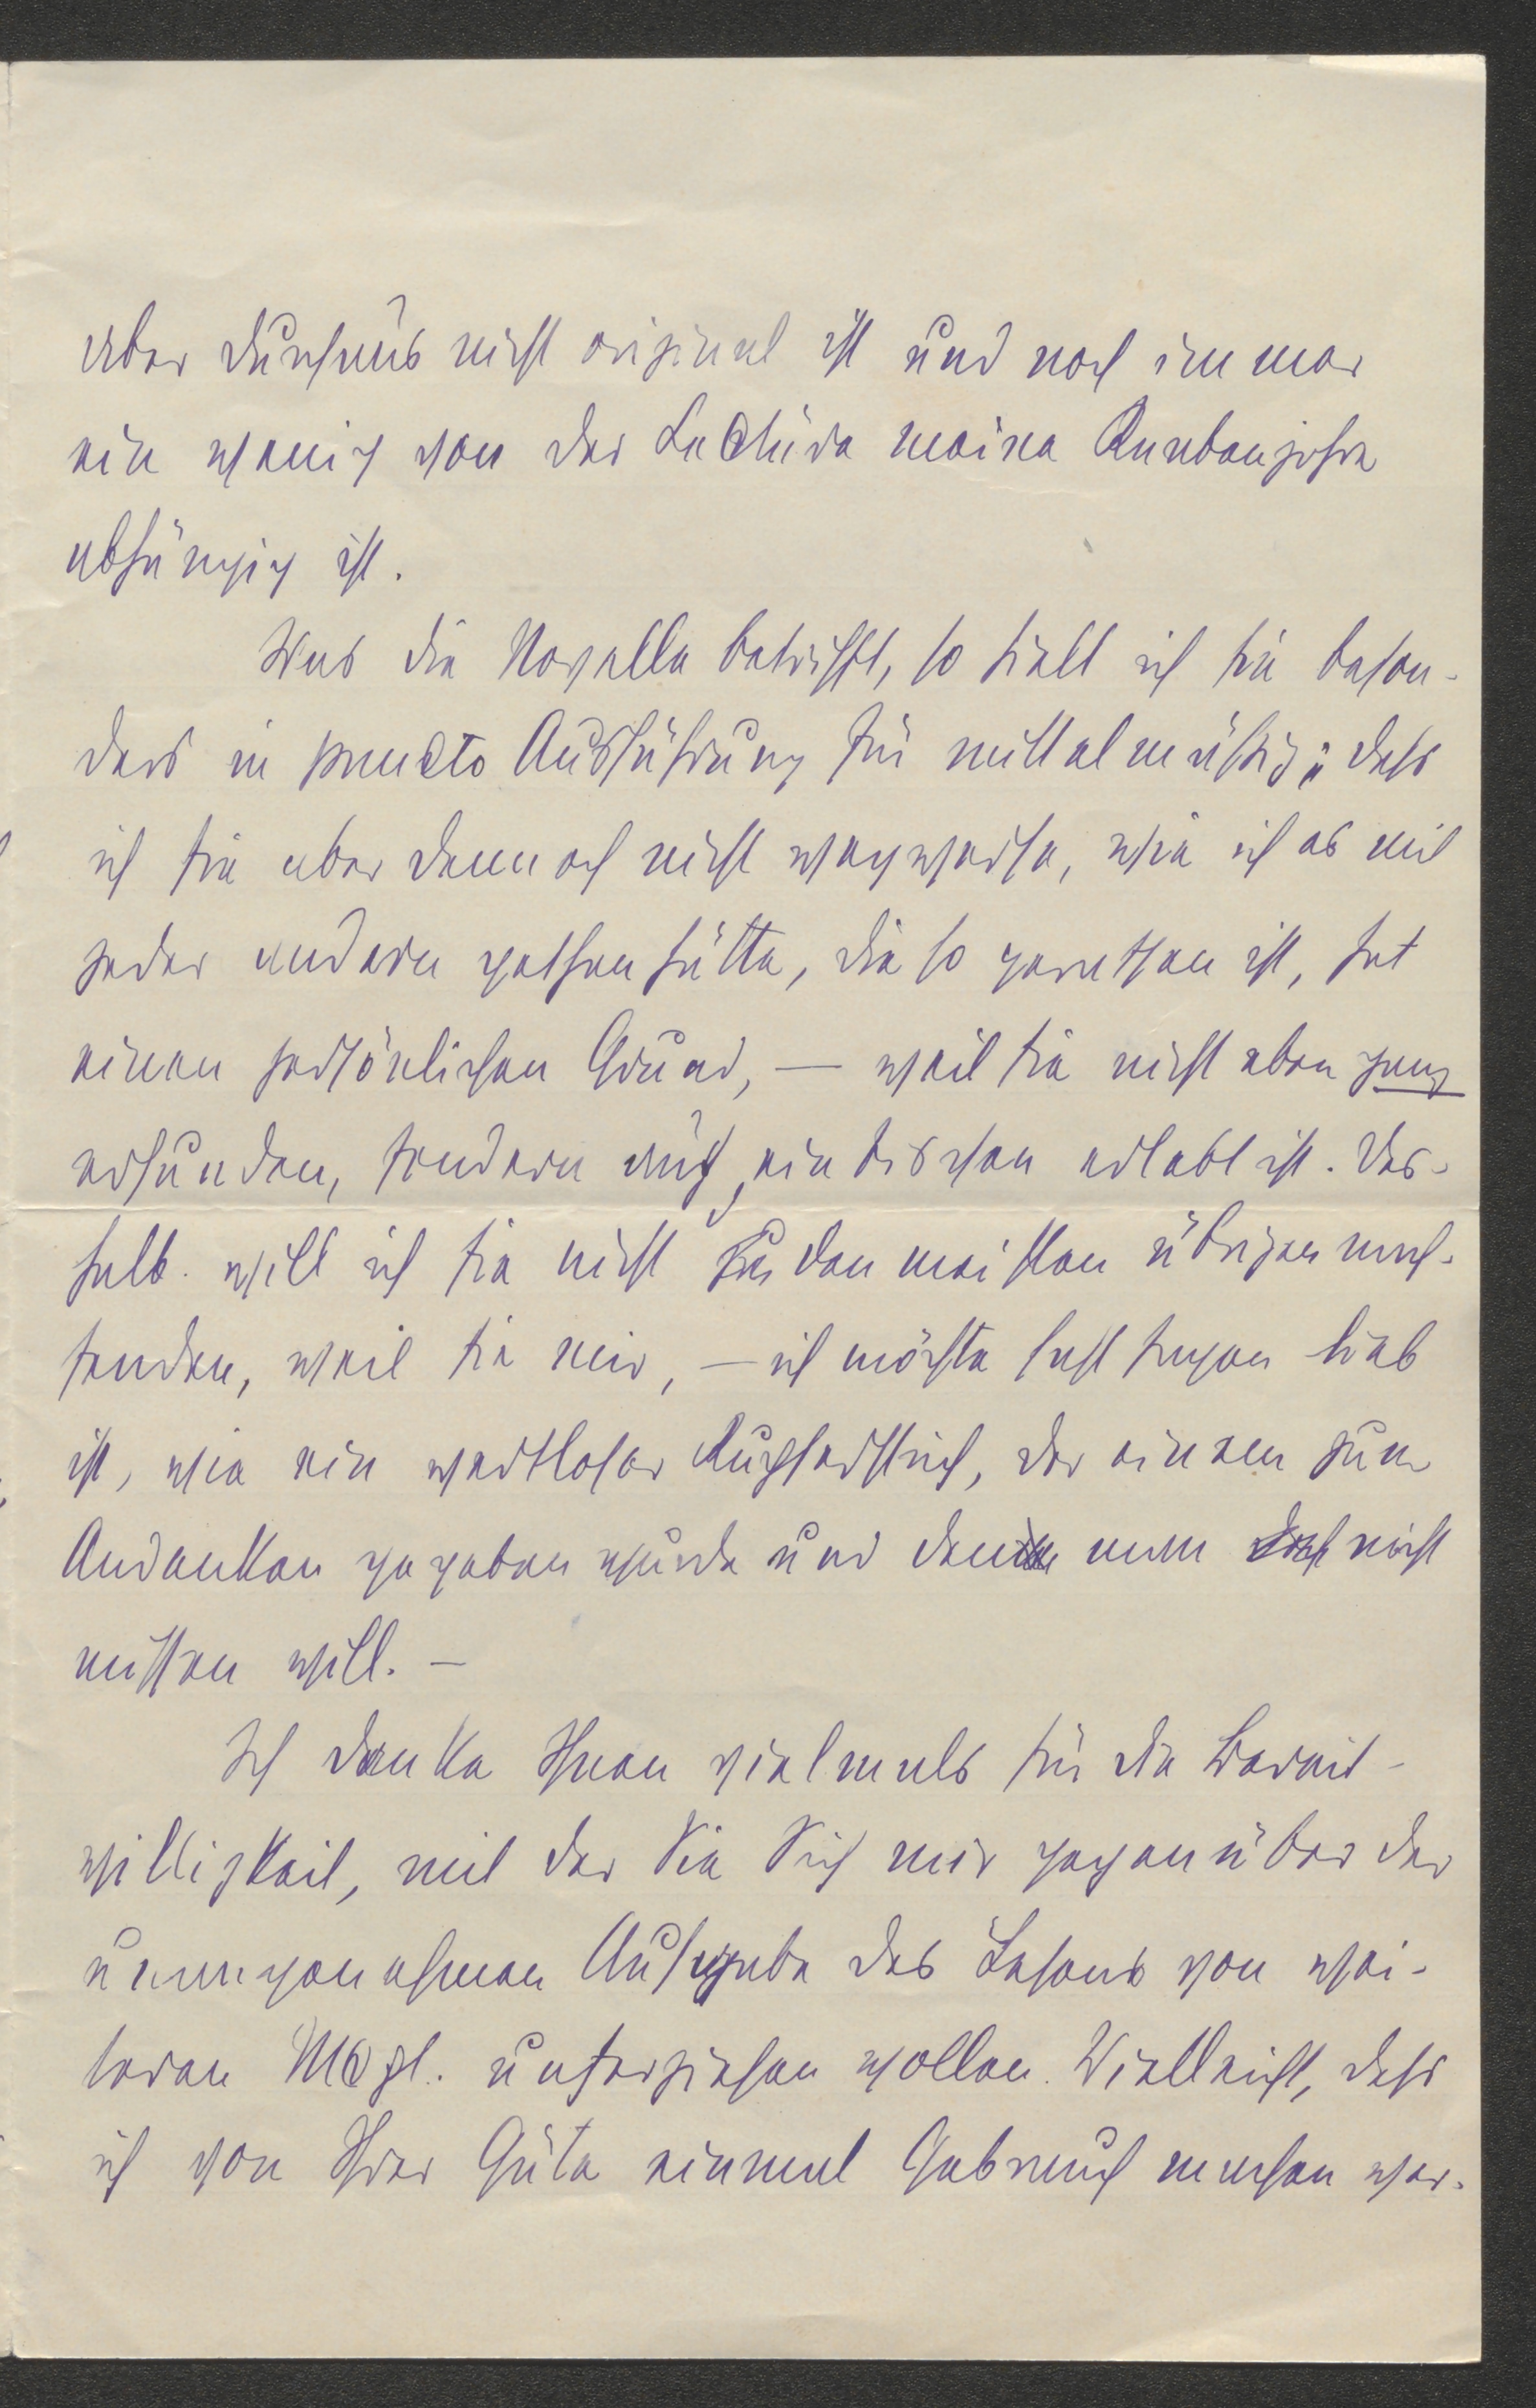 aber durchaus nicht original ist und noch immer
ein wenig von der Lectüre meiner Knabenjahre
abhängig ist.
Was die Novelle betrifft, so hielt ich sie beson-
ders in puncto Ausführung für mittelmäßig; daß
ich sie aber dennoch nicht wegwerfe, wie ich es mit
jeder andern gethan hätte, die so gerathen ist, hat
einen persönlichen Grund, — weil sie nicht eben ganz
erfunden, sondern auch ein bischen erlebt ist. Des-
halb will ich sie nicht zu den meisten übrigen
senden, weil sie mir, — ich möchte fast sagen lieb
ist, wie ein wertloser Kupferstich, der einem zum
Andenken gegeben wurde und den man doch nicht
missen will. —
Ich danke Ihnen vielmals für die Bereit-
willigkeit, mit der Sie Sich mir gegenüber der
unangenehmen Aufgabe des Lesens von wei-
teren unterziehen wollen. Vielleicht, daß
ich von Ihrer Güte einmal Gebrauch machen wer-